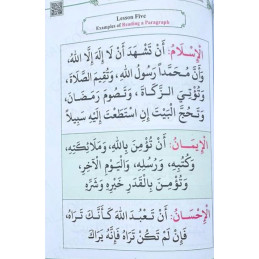 Lesson Five
Examples of Reading a Paragraph
الْإِسْلَامُ: أَنْ تَشْهَدَ أَنْ لَا إِلَهَ إِلَّا اللهُ،
وَأَنَّ مُحَمَّدًا رَسُولُ اللهِ، وَتُقِيمَ الصَّلَاةَ،
وَتُؤْتِيَ الزَّكَاةَ، وَتَصُومَ رَمَضَانَ،
وَتَحُجَّ الْبَيْتَ إِنِ اسْتَطَعْتَ إِلَيْهِ سَبِيلًا
الْإِيمَانُ: أَنْ تُؤْمِنَ بِاللهِ، وَمَلَائِكَتِهِ،
وَكُتُبِهِ، وَرُسُلِهِ، وَالْيَوْمِ الْآخِرِ،
وَتُؤْمِنَ بِالْقَدَرِ خَيْرِهِ وَشَرِّهِ
الْإِحْسَانُ: أَنْ تَعْبُدَ اللهَ كَأَنَّكَ تَرَاهُ،
فَإِنْ لَمْ تَكُنْ تَرَاهُ فَإِنَّهُ يَرَاكَ